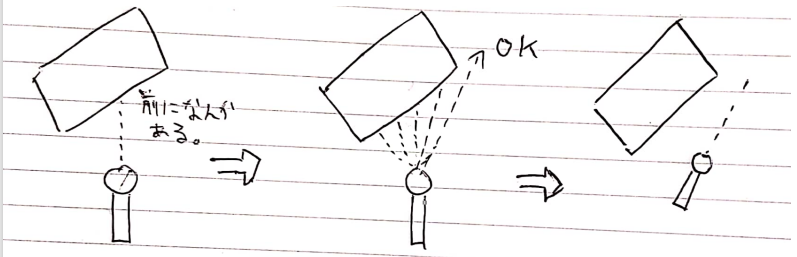 前になんか
ある。
OK